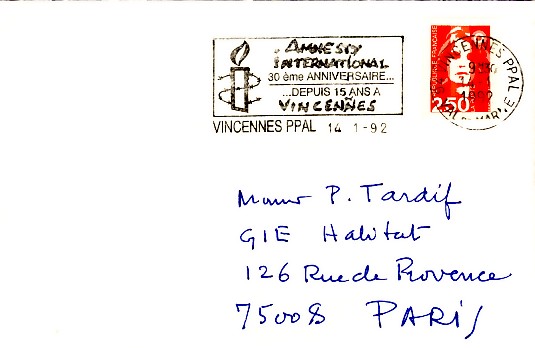 AMNESTY
INTERNATIONAL
30 ème ANNIVERSAIRE...
...DEPUIS 15 ANS A
VINCENNES
VINCENNES PPAL 14 1-92
VINCENNES PPAL
14 1
1992
VAL DE MARNE
REPUBLIQUE FRANCAISE
2,50
P. Tardif
GIE Habitat
126 Rue de Provence
75008 PARIS